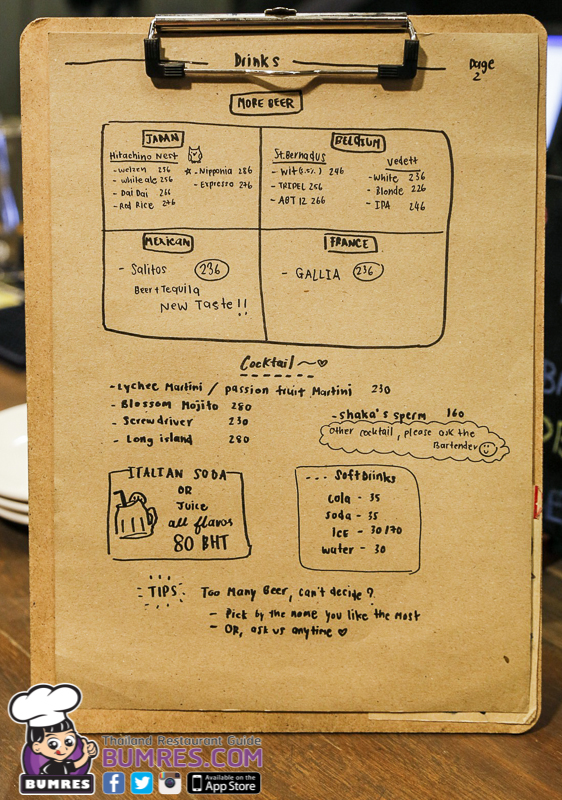 Drinks
Page 2
MORE BEER
JAPAN
Hitachino Nest
- weizen 256
- white ale 256
- Dai Dai 266
- Red Rice 276
☆ - Nipponia 286
- Espresso 276
BELGIUM
St.Bernadus
- Wit (5.5%) 246
- TRIPEL 256
- ABT 12 266
Vedett
- White 236
- Blonde 226
- IPA 246
MEXICAN
- Salitos 236
Beer + Tequila
New Taste !!
FRANCE
- GALLIA 236
Cocktail ~♡
- Lychee Martini / passion fruit Martini 230
- Blossom Mojito 280
- Screwdriver 230
- Long island 280
- shaka's sperm 160
other cocktail, please ask the
Bartender
ITALIAN SODA
OR
Juice
all flavor
80 BHT
--- Soft Drinks
cola - 35
soda - 35
ICE - 30/70
water - 30
TIPS Too Many Beer, can't decide?
- Pick by the name you like the most
- OR, ask us anytime ♥
BUMRES
Thailand Restaurant Guide
BUMRES.COM
Available on the
App Store